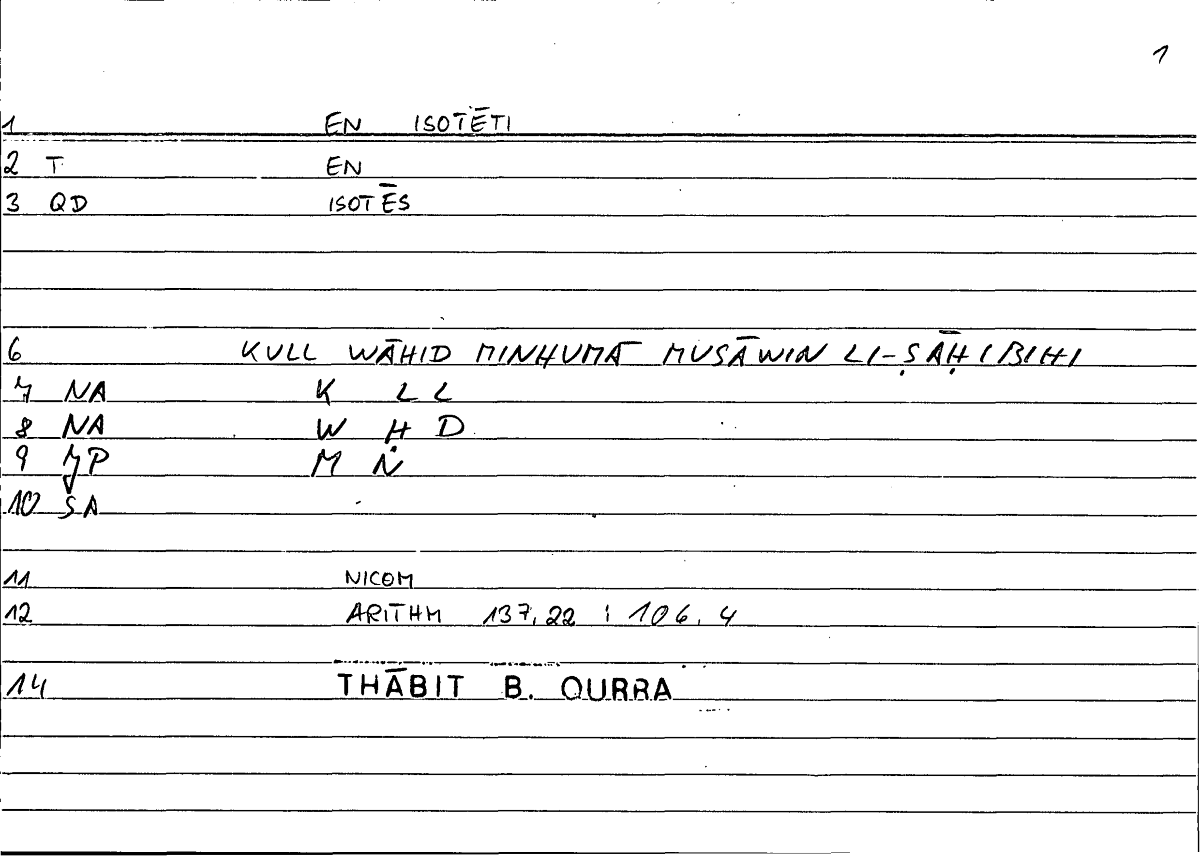 1
1 EN ISOTĒTI
2 T EN
3 QD ISOTĒS
6 KULL WĀHID MINHUMĀ MUSĀWIN LI-ṢĀḤIBIHI
7 NA K LL
8 NA W Ḥ D
9 JP M N
10 ŠA
11 NICOM
12 ARITHM 137,22 ; 106,4
14 THĀBIT B. QURRA